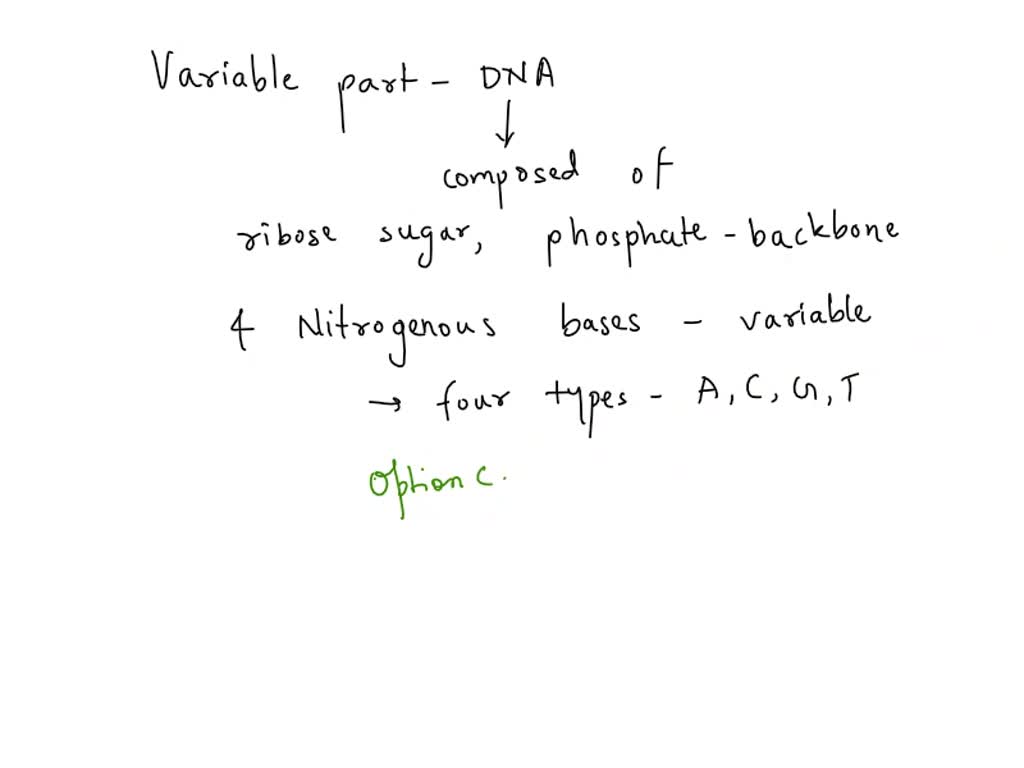 Variable part - DNA
↓
composed of
ribose sugar, phosphate - backbone
4 Nitrogenous bases - variable
→ four types - A, C, G, T
Option C.